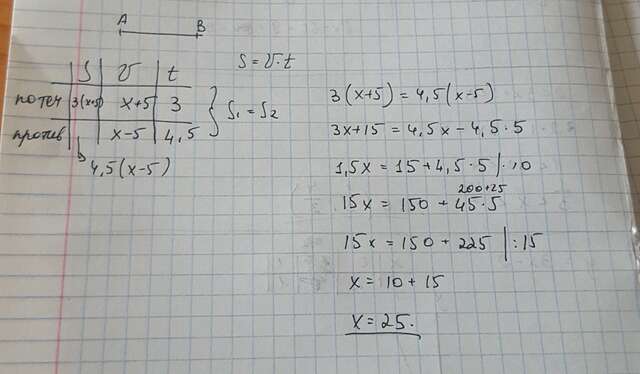 A B
S = v·t
S v t
по теч 3(x+5) x+5 3
S₁ = S₂
против x-5 4,5
4,5(x-5)
3(x+5) = 4,5(x-5)
3x+15 = 4,5x - 4,5·5
1,5x = 15 + 4,5·5 |·10
200+25
15x = 150 + 45·5
15x = 150 + 225 |:15
x = 10 + 15
x = 25.